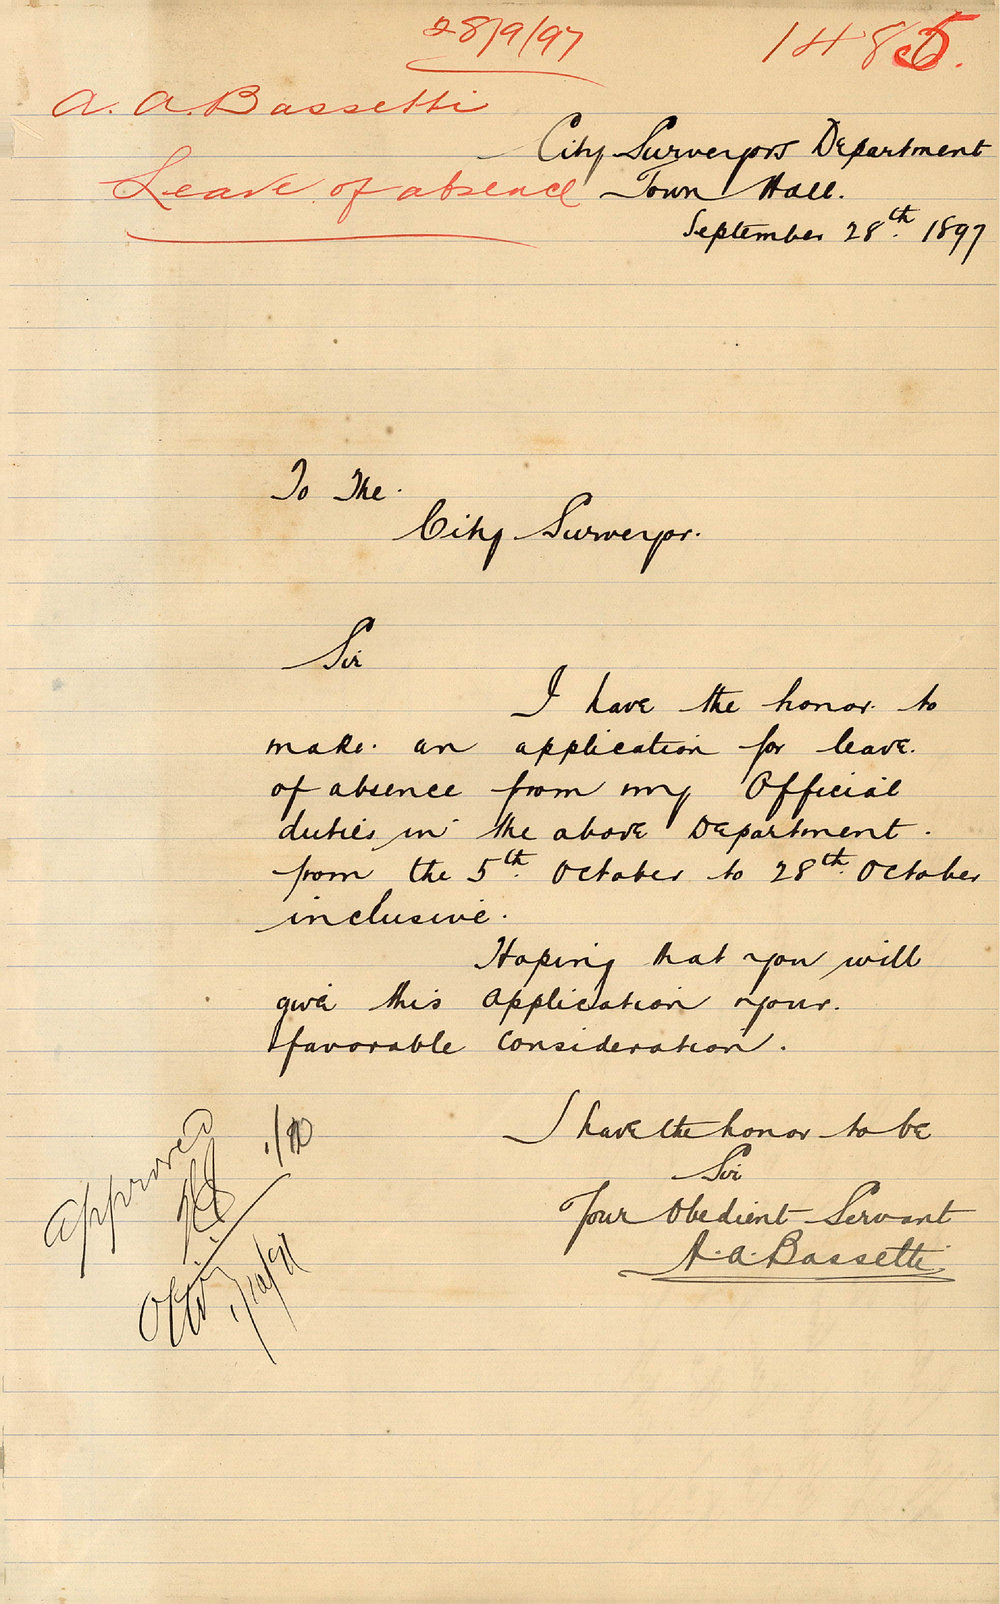 28/9/97
1485.
A. A. Bassetti
Leave of absence
City Surveyors Department
Town Hall.
September 28th. 1897
To The.
City Surveyor.
Sir
I have the honor to
make an application for leave.
of absence from my Official
duties in the above Department.
from the 5th. October to 28th. October
inclusive.
Hoping that you will
give this application your.
favorable consideration.
I have the honor to be
Sir
Your Obedient Servant
A. A. Bassetti
Approved
1/10/97